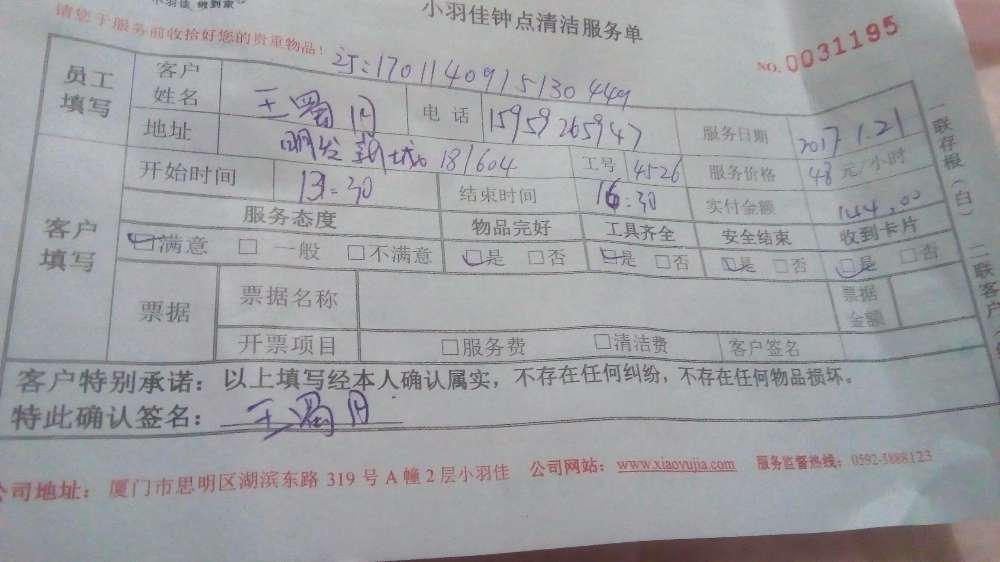 小羽佳 做到家
小羽佳钟点清洁服务单
请您于服务前收拾好您的贵重物品！
NO. 0031195
订:1701140915130449
员工填写 客户姓名 王蜀月 电 话 15959265947 服务日期 2017 1.21
地址 明发 城 181604 工号 4526 服务价格 48 元/小时
客户填写 开始时间 13:30 结束时间 16:30 实付金额 144.00
服务态度 物品完好 工具齐全 安全结束 收到卡片
□满意 □ 一般 □不满意 □是 □否 □是 □否 □是 □否 □是 □否
票据 票据名称 票据金额
开票项目 □服务费 □清洁费 客户签名
客户特别承诺：以上填写经本人确认属实，不存在任何纠纷，不存在任何物品损坏。
特此确认签名：王蜀月
公司地址： 厦门市思明区湖滨东路 319 号 A 幢 2 层小羽佳 公司网站：www.xiaoyujia.com 服务监督热线：0592-5888123
一联存根（白） 二联客户